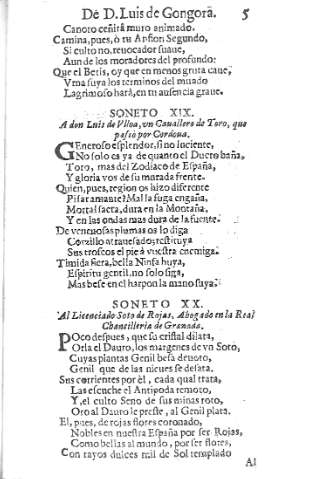 De D. Luis de Gongora. 5
Canoro ceñirà muro animado.
Camina, pues, ò tu Anfion Segundo,
Si culto no, reuocador suaue,
Aun de los moradores del profundo:
Que el Betis, oy que en menos gruta caue,
Vrna suya los terminos del mundo
Lagrimoso harà, en tu ausencia graue.
SONETO XIX.
A don Luis de Vlloa, vn Cauallero de Toro, que
passò por Cordoua.
GEneroso esplendor, si no luciente,
No solo es ya de quanto el Duero baña,
Toro, mas del Zodiaco de España,
Y gloria vos de su morada frente.
Quien, pues, region os hizo diferente
Pisar amante? Mal la fuga engaña,
Mortal saeta, dura en la Montaña,
Y en las ondas mas dura de la fuente.
De venenosas plumas os lo diga
Corcillo atrauesado; restituya
Sus trofeos el pie à vuestra enemiga.
Timida fiera, bella Ninfa huya,
Espiritu gentil, no solo siga,
Mas bese en el harpon la mano suya.
SONETO XX.
Al Licenciado Soto de Rojas, Abogado en la Real
Chancilleria de Granada.
POco despues, que su cristal dilata,
Orla el Dauro, los margenes de vn Soto,
Cuyas plantas Genil besa deuoto,
Genil que de las nieues se desata.
Sus corrientes por èl, cada qual trata,
Las escuche el Antipoda remoto,
Y, el culto Seno de sus minas roto,
Oro al Dauro le preste, al Genil plata.
El, pues, de rojas flores coronado,
Nobles en nuestra España por ser Rojas,
Como bellas al mundo, por ser flores,
Con rayos dulces mil de Sol templado
Al